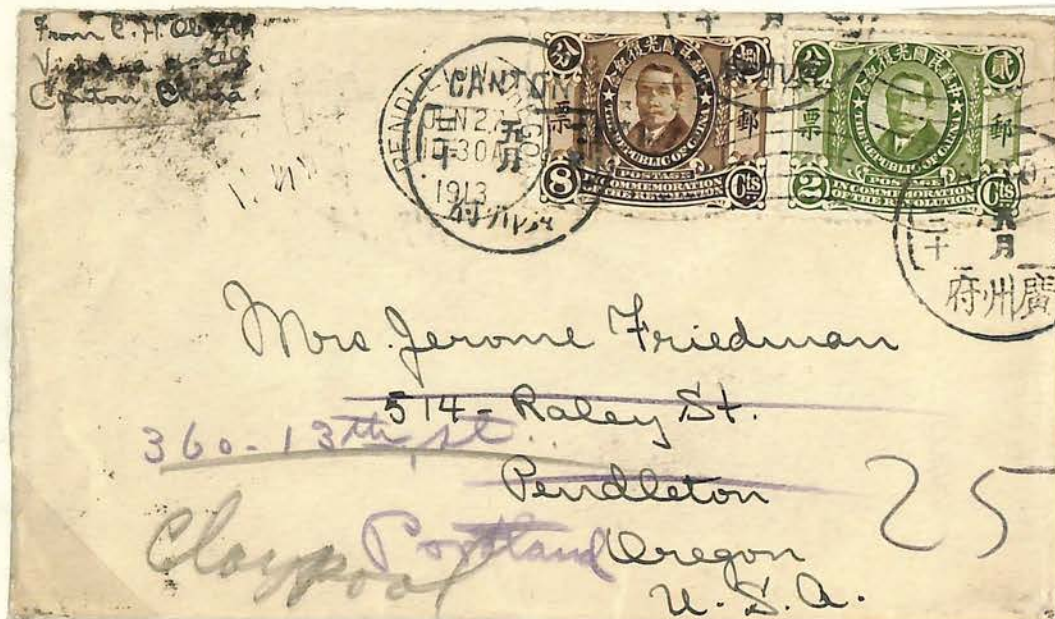 From C. H.
Canton, China
PENDLETON
CANTON
JUN 2
10-30 A
1913
元月
二十
府州廣
分 捌
中華民國光復紀念
票 郵
THE REPUBLIC OF CHINA
POSTAGE
8 IN COMMEMORATION OF THE REVOLUTION Cts
分 貳
中華民國光復紀念
票 郵
THE REPUBLIC OF CHINA
POSTAGE
2 IN COMMEMORATION OF THE REVOLUTION Cts
二十
月
府州廣
Mrs. Jerome Friedman
514-Raley St.
360-13th st.
Pendleton
25
Claypool Portland Oregon
U.S.A.